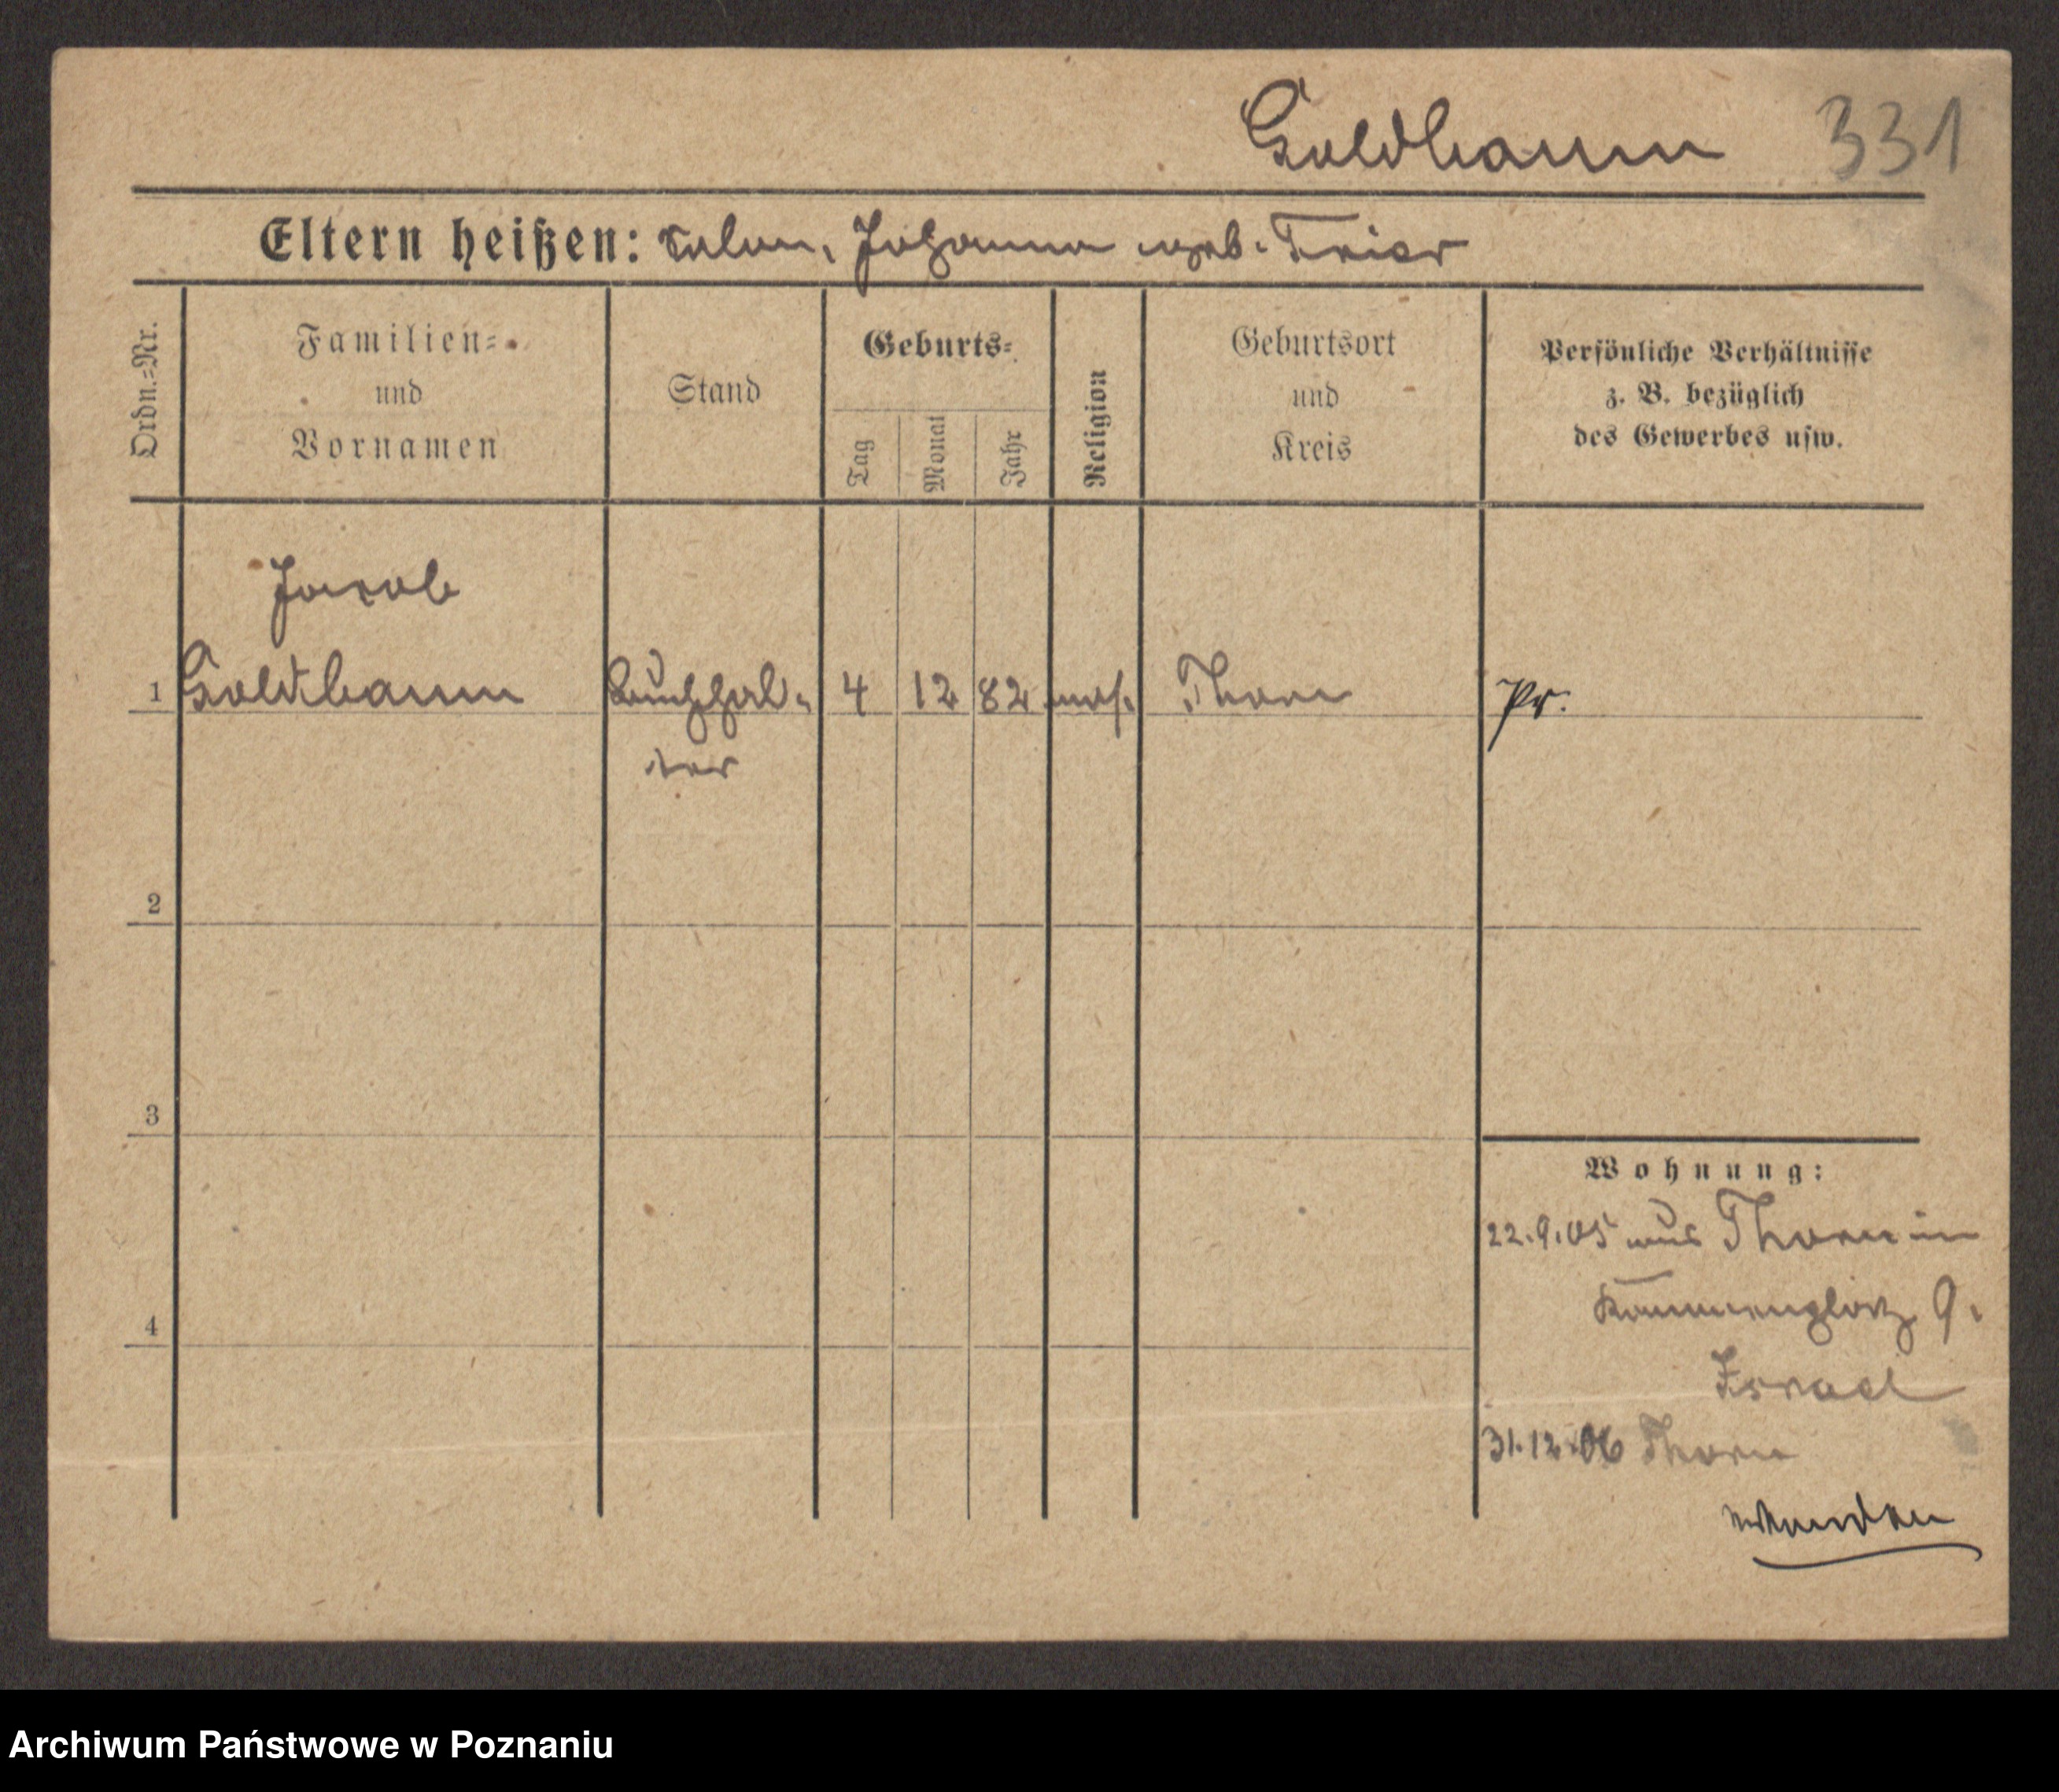 Goldbaum 331
Eltern heißen: Johanna geb. Trier
Ordn.-Nr.
Familien-
und
Vornamen
Stand
Geburts-
Tag
Monat
Jahr
Religion
Geburtsort
und
Kreis
Persönliche Verhältnisse
z. B. bezüglich
des Gewerbes usw.
Jacob
1 Goldbaum Buchhal- 4 12 82 mos. Thorn Pr.
ter
2
3
4
Wohnung:
22.9.05 aus Thorn in
9.
Israel
31.12.06 Thorn
Archiwum Państwowe w Poznaniu